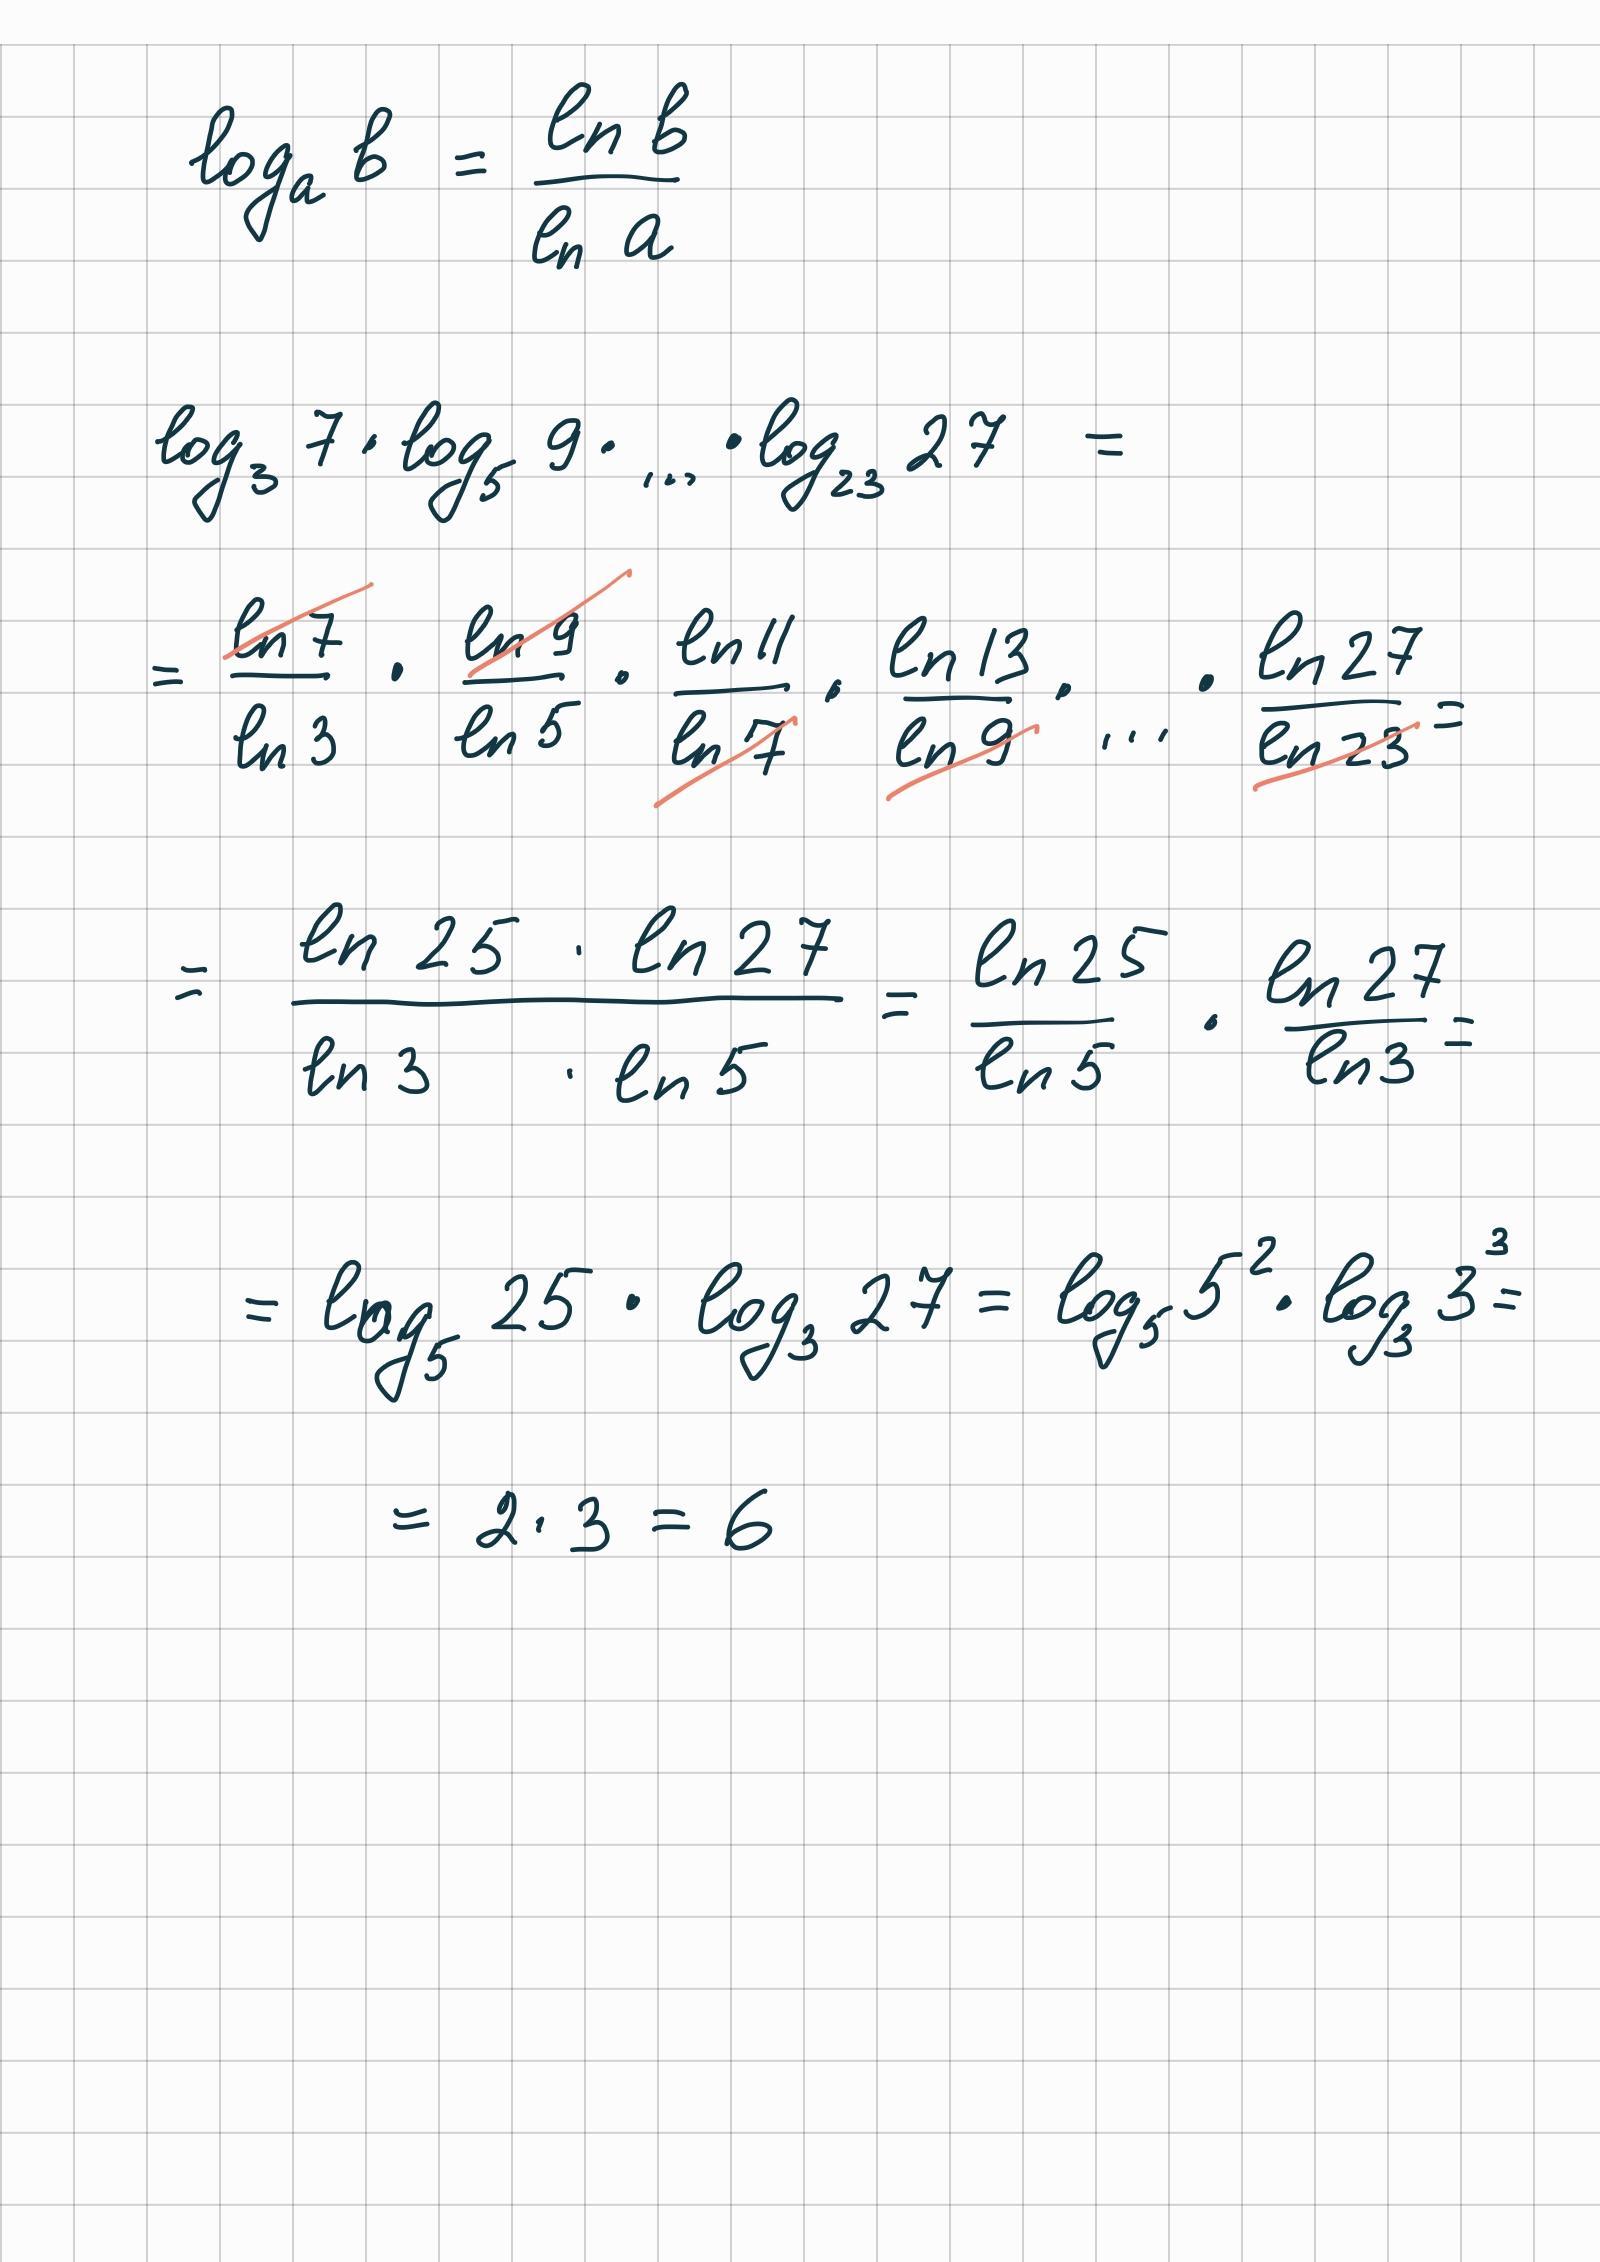 logₐ b = ln b / ln a
log₃ 7 · log₅ 9 · ... · log₂₃ 27 =
= ln 7 / ln 3 · ln 9 / ln 5 · ln 11 / ln 7 · ln 13 / ln 9 · ... · ln 27 / ln 23 =
= ln 25 · ln 27 / ln 3 · ln 5 = ln 25 / ln 5 · ln 27 / ln 3 =
= log₅ 25 · log₃ 27 = log₅ 5² · log₃ 3³ =
= 2 · 3 = 6